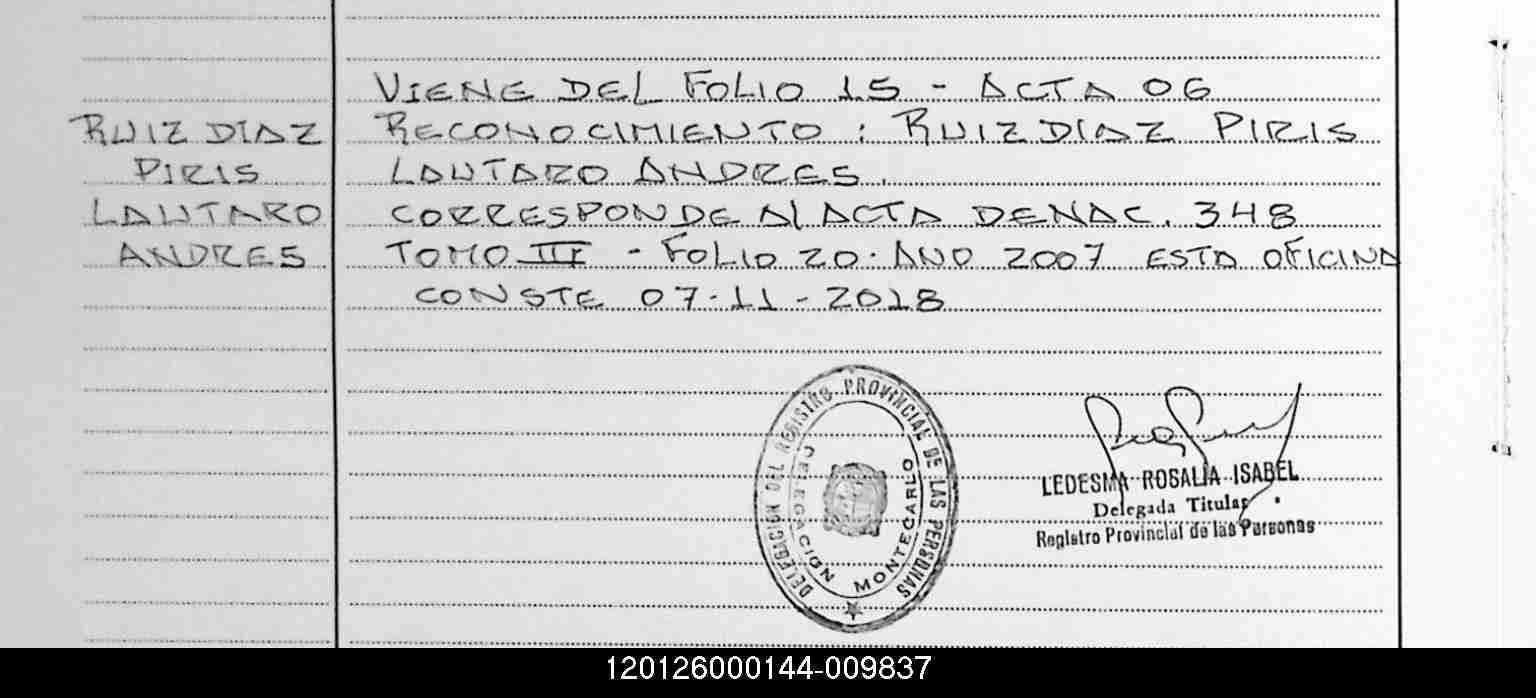 VIENE DEL FOLIO 15 - ACTA 06
RUIZ DIAZ
PIRIS
LAUTARO
ANDRES
RECONOCIMIENTO : RUIZ DIAZ PIRIS
LAUTARO ANDRES.
CORRESPONDE AL ACTA DE NAC. 348
TOMO III - FOLIO 20. ANO 2007 ESTA OFICINA
CONSTE 07-11-2018
DELEGACION DEL REGISTRO PROVINCIAL DE LAS PERSONAS
DELEGACION MONTECARLO
LEDESMA ROSALIA ISABEL
Delegada Titular
Registro Provincial de las Personas
120126000144-009837